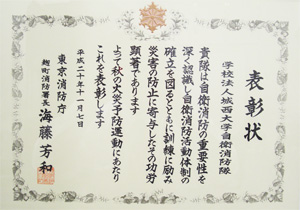 表彰状
学校法人城西大学自衛消防隊
貴隊は自衛消防の重要性を
深く認識し自衛消防活動体制の
確立を図るとともに訓練に励み
災害の防止に寄与したその功労
顕著であります
よって秋の火災予防運動にあたり
これを表彰します
平成二十年十一月七日
東京消防庁
麹町消防署長 海藤芳和